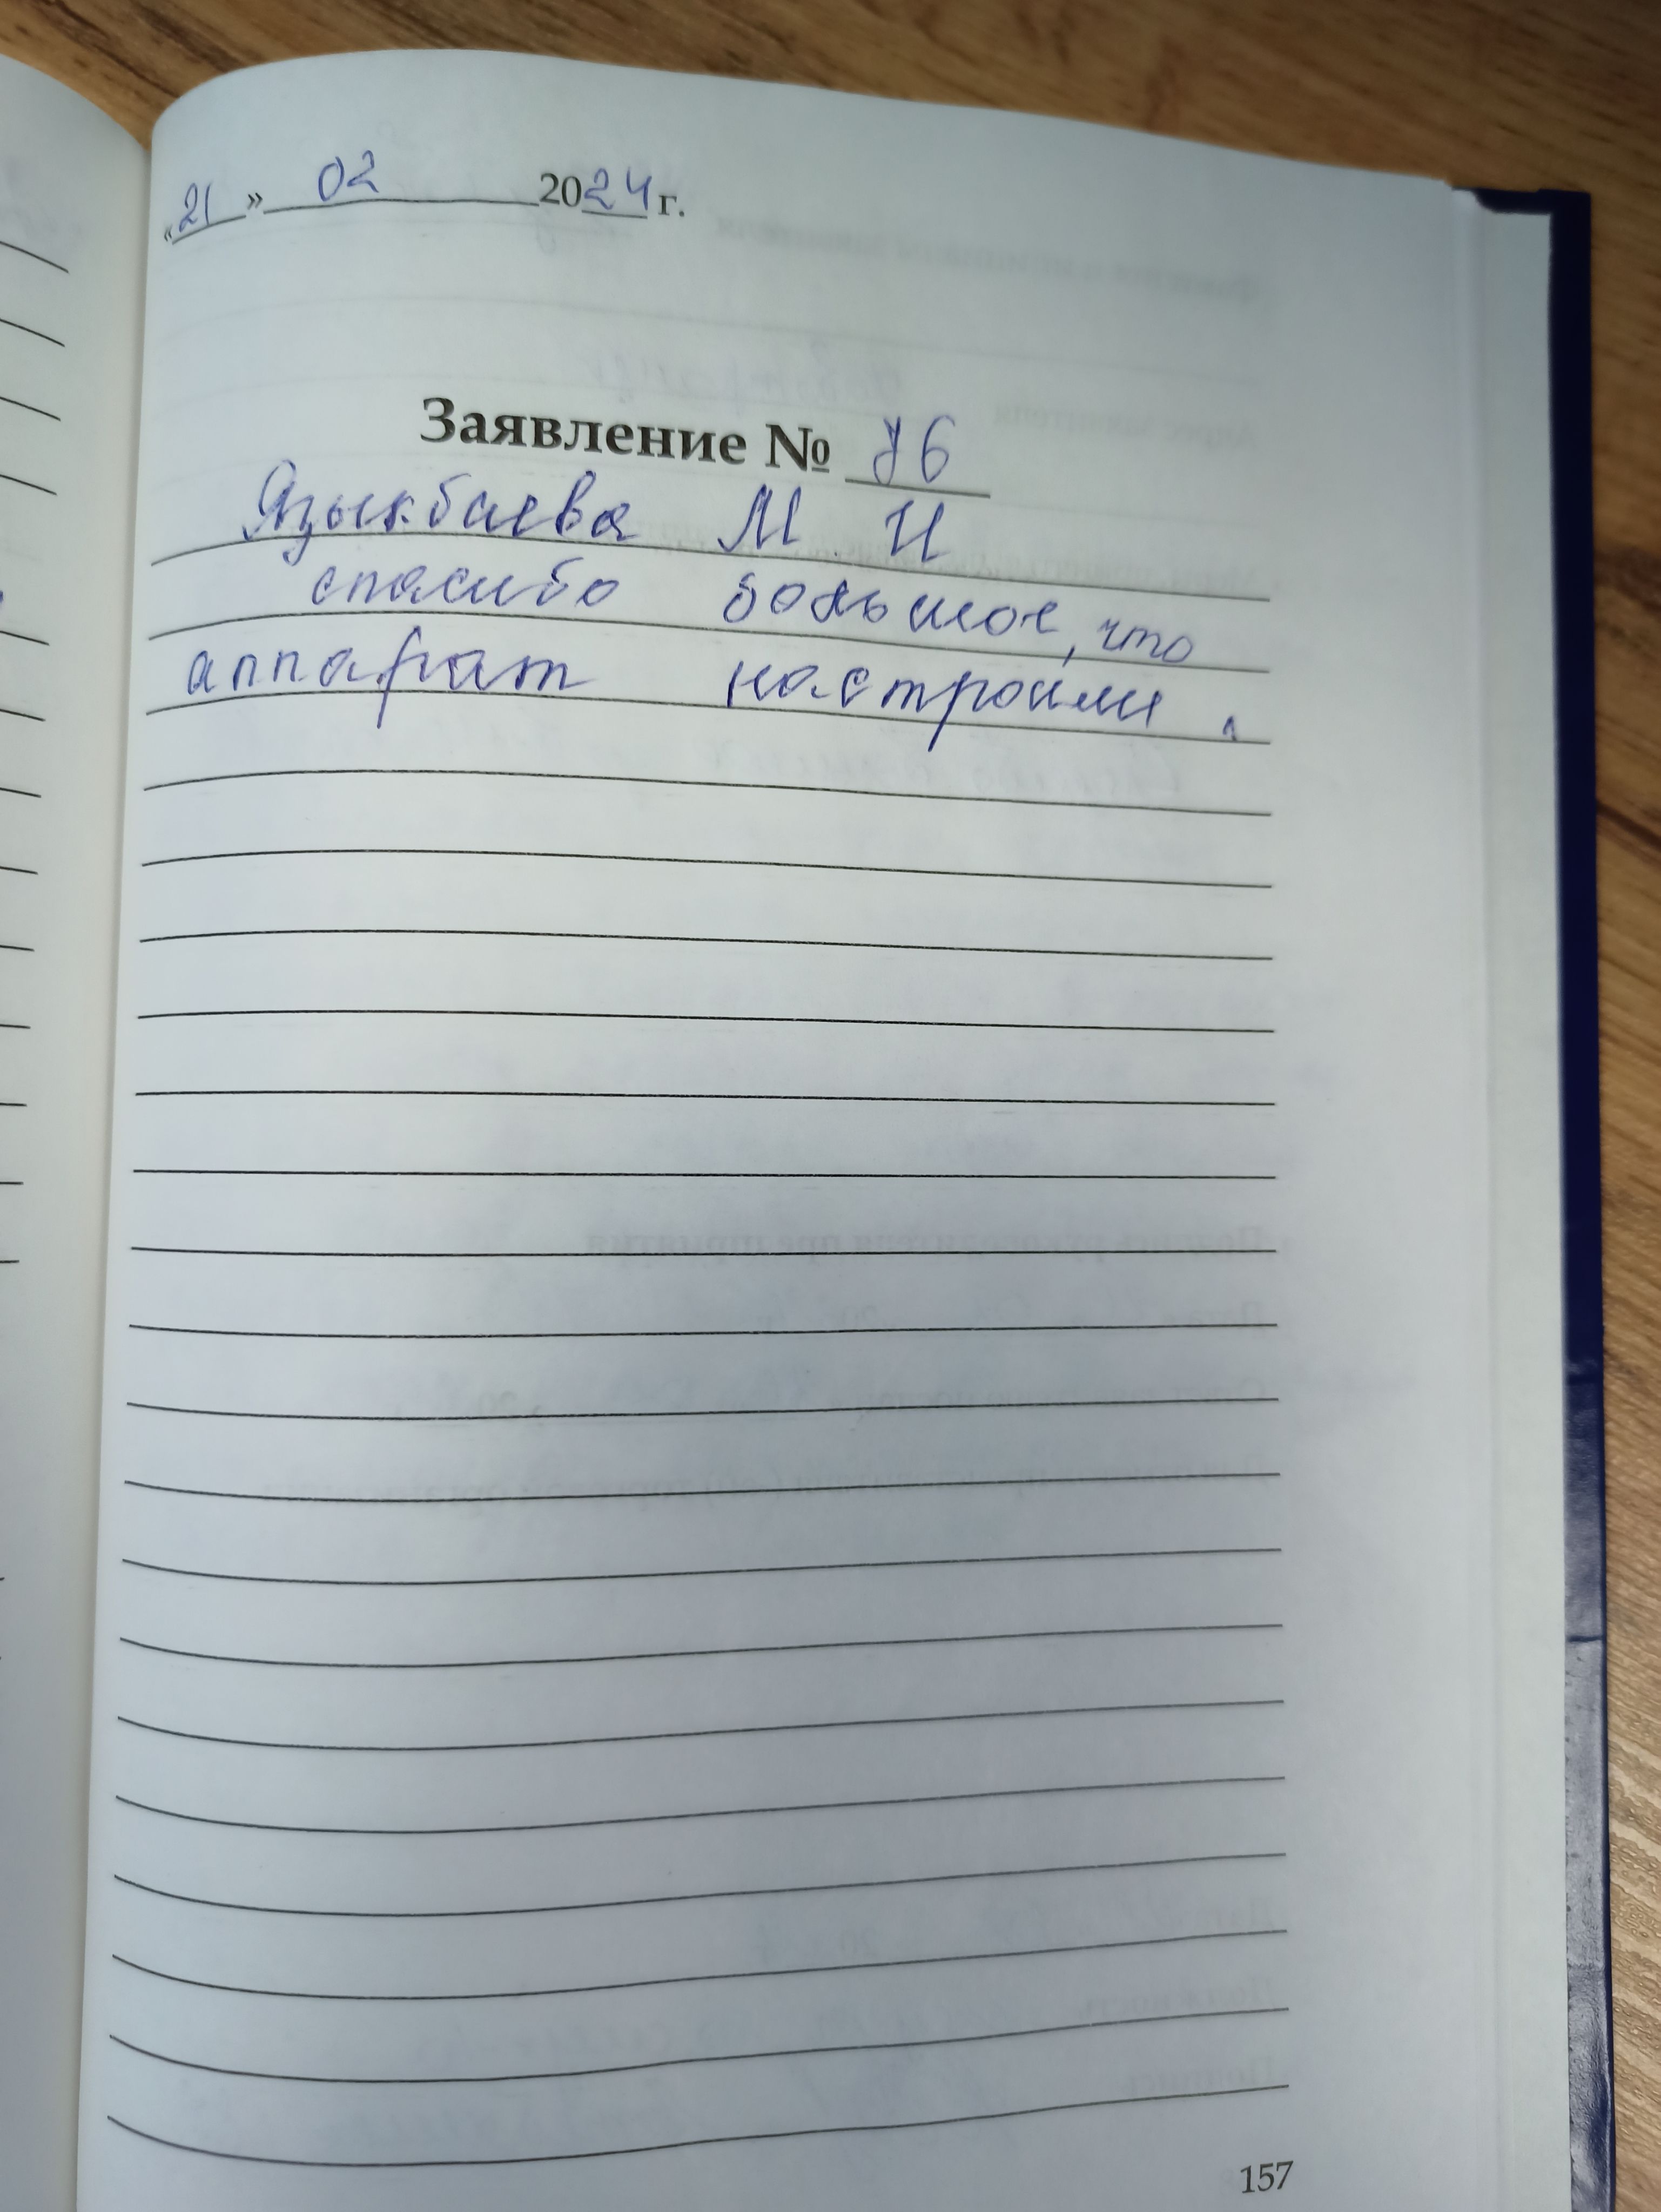 «21» 02 2024 г.
Заявление № 76
Языкбаева М. И
спасибо большое, что
аппарат настроили.
157